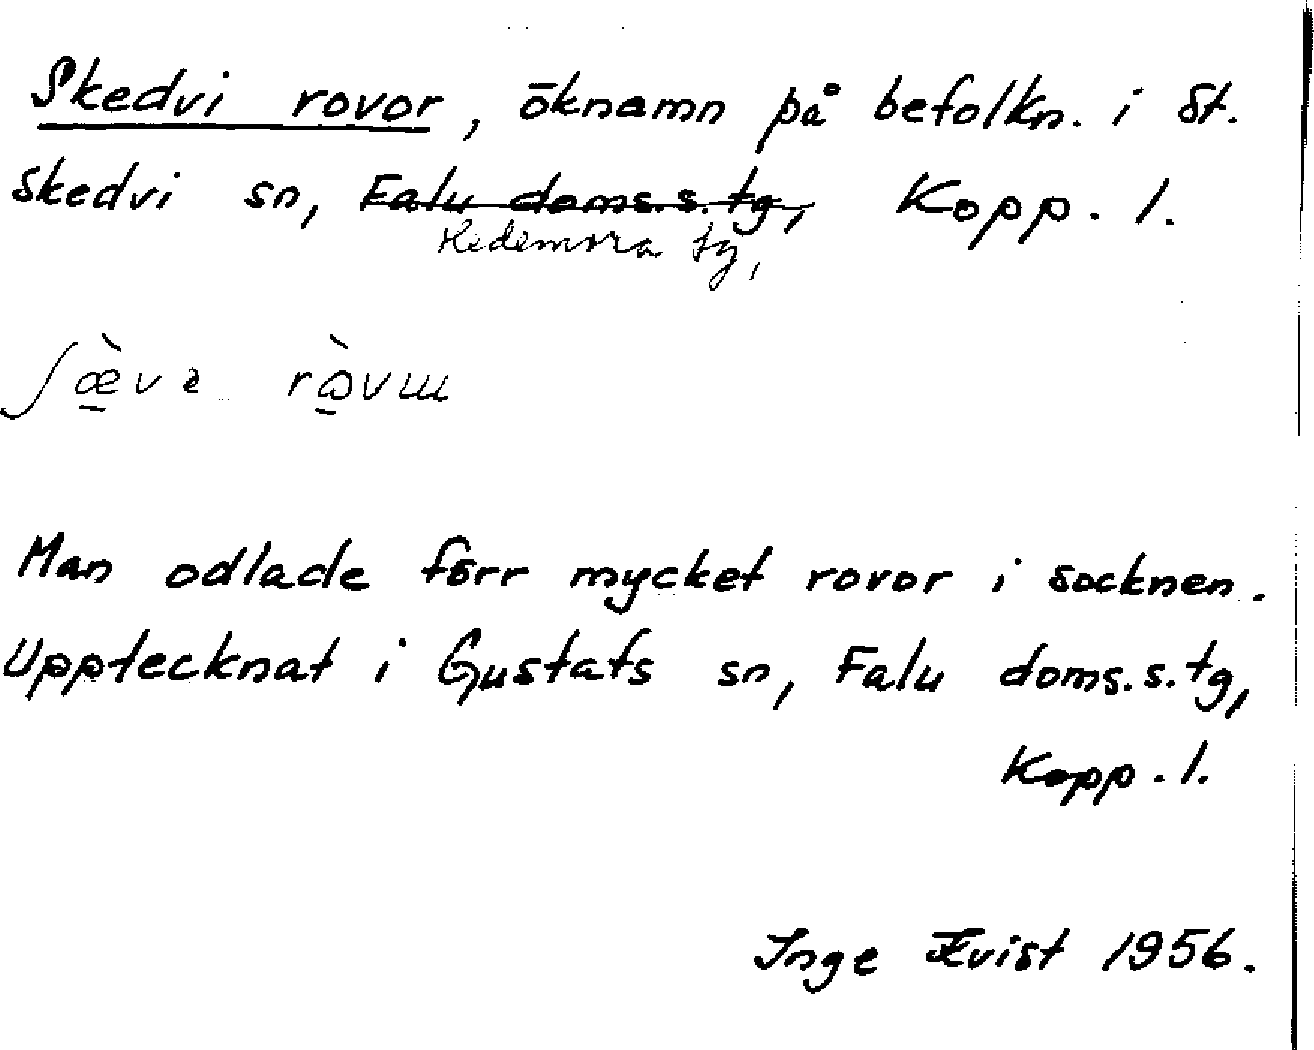 Skedvi rovor, öknamn på befolkn. i St.
Skedvi sn, Falu doms.s.tg, Kopp. l.
Hedemora tg,
ʃæ̠̀və rò̠vɯ
Man odlade förr mycket rovor i socknen.
Upptecknat i Gustafs sn, Falu doms.s.tg,
Kopp. l.
Inge Kvist 1956.